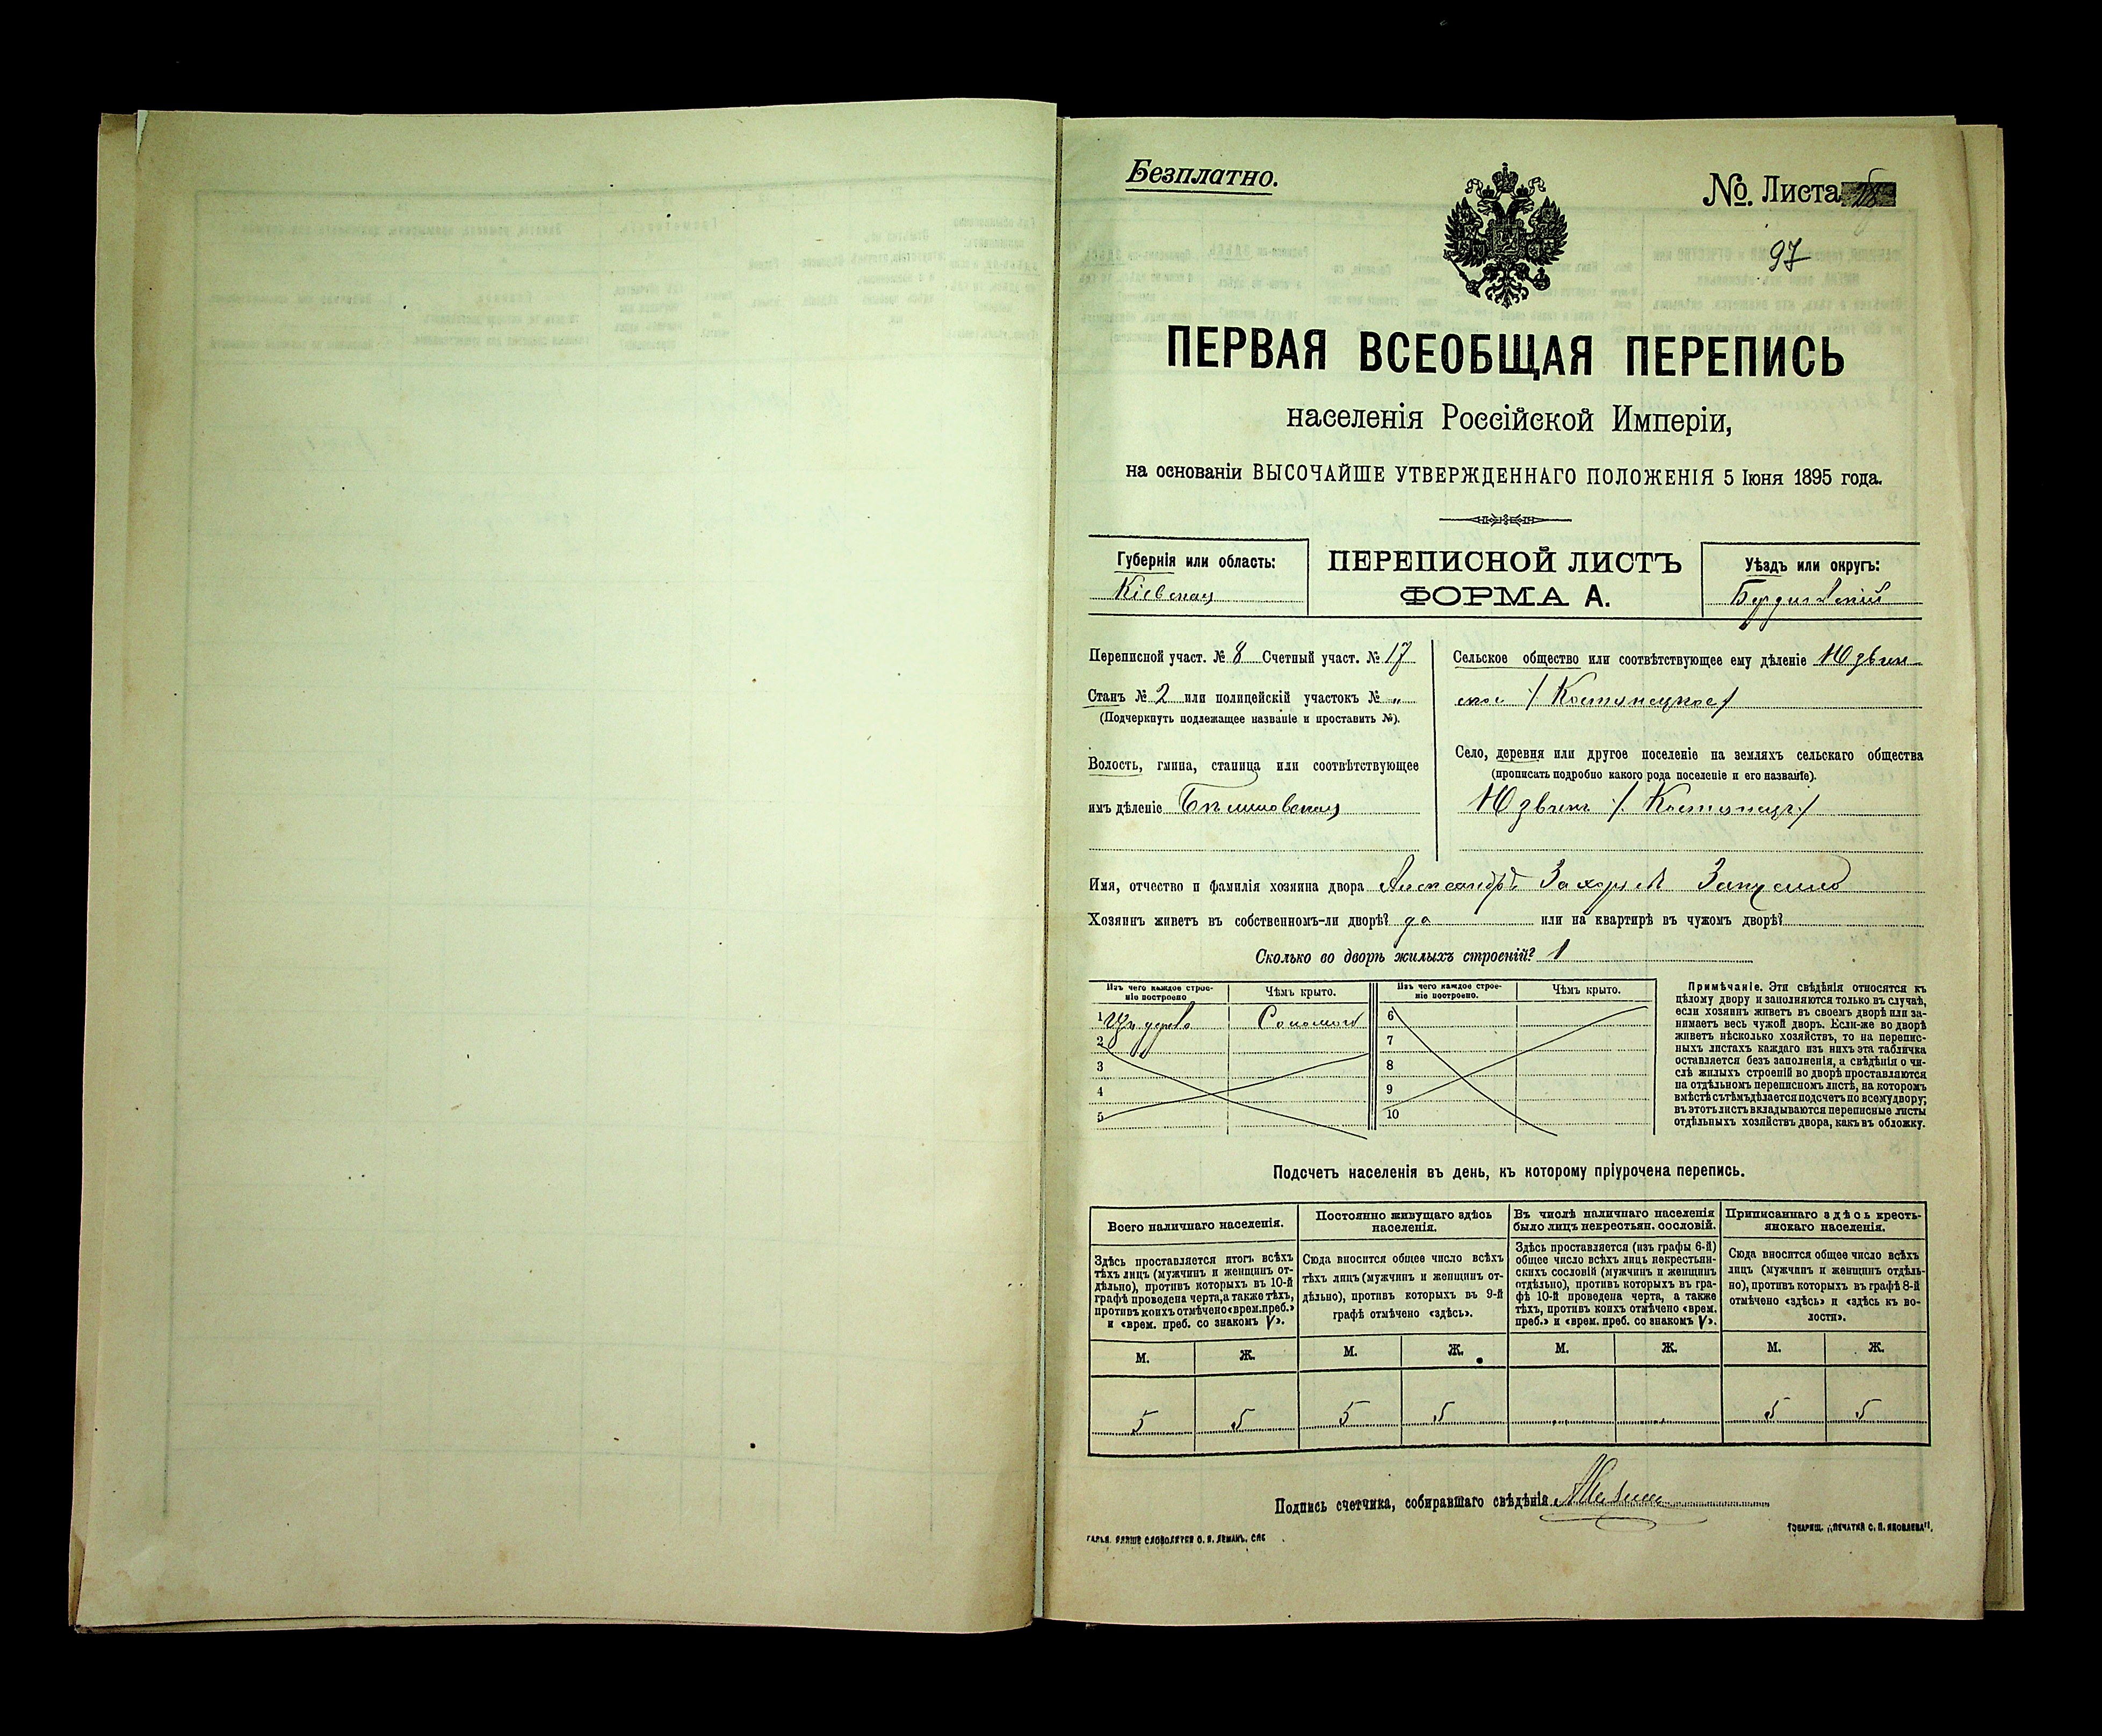 Безплатно.
№. Листа
97
ПЕРВАЯ ВСЕОБЩАЯ ПЕРЕПИСЬ
населенія Россійской Имперіи,
на основаніи ВЫСОЧАЙШЕ УТВЕРЖДЕННАГО ПОЛОЖЕНІЯ 5 Іюня 1895 года.
Губернія или область:
Кіевская
ПЕРЕПИСНОЙ ЛИСТЪ
ФОРМА А.
Уѣздъ или округъ:
Бердичевскій
Переписной участ. № 8 Счетный участ. № 17
Станъ № 2 или полицейскій участокъ № „
(Подчеркнуть подлежащее названіе и проставить №).
Волость, гмина, станица или соотвѣтствующее
имъ дѣленіе
Сельское общество или соотвѣтствующее ему дѣленіе Юзвин
ское /Костянецкое/
Село, деревня или другое поселеніе на земляхъ сельскаго общества
(прописать подробно какого рода поселеніе и его названіе).
Имя, отчество и фамилія хозяина двора Александръ Захарьев
Хозяинъ живетъ въ собственномъ-ли дворѣ? да или на квартирѣ въ чужомъ дворѣ?
Сколько во дворѣ жилыхъ строеній? 1
Изъ чего каждое строе-
ніе построено
Чѣмъ крыто.
Изъ чего каждое строе-
ніе построено.
Чѣмъ крыто.
1 Изъ дерева Соломой
2
3
4
5
6
7
8
9
10
Примѣчаніе. Эти свѣдѣнія относятся къ
цѣлому двору и заполняются только въ случаѣ,
если хозяинъ живетъ въ своемъ дворѣ или за-
нимаетъ весь чужой дворъ. Если-же во дворѣ
живетъ нѣсколько хозяйствъ, то на перепис-
ныхъ листахъ каждаго изъ нихъ эта табличка
оставляется безъ заполненія, а свѣдѣнія о чи-
слѣ жилыхъ строеній во дворѣ проставляются
на отдѣльномъ переписномъ листѣ, на которомъ
вмѣстѣ съ тѣмъ дѣлается подсчетъ по всему двору;
въ этотъ листъ вкладываются переписные листы
отдѣльныхъ хозяйствъ двора, какъ въ обложку.
Подсчетъ населенія въ день, къ которому пріурочена перепись.
Всего наличнаго населенія.
Здѣсь проставляется итогъ всѣхъ
тѣхъ лицъ (мужчинъ и женщинъ от-
дѣльно), противъ которыхъ въ 10-й
графѣ проведена черта, а также тѣхъ,
противъ коихъ отмѣчено «врем. преб.»
и «врем. преб. со знакомъ V».
Постоянно живущаго здѣсь
населенія.
Сюда вносится общее число всѣхъ
тѣхъ лицъ (мужчинъ и женщинъ от-
дѣльно), противъ которыхъ въ 9-й
графѣ отмѣчено «здѣсь».
Въ числѣ наличнаго населенія
было лицъ некрестьян. сословій.
Здѣсь проставляется (изъ графы 6-й)
общее число всѣхъ лицъ некрестьян-
скихъ сословій (мужчинъ и женщинъ
отдѣльно), противъ которыхъ въ гра-
фѣ 10-й проведена черта, а также
тѣхъ, противъ коихъ отмѣчено «врем.
преб.» и «врем. преб. со знакомъ V».
Приписаннаго здѣсь кресть-
янскаго населенія.
Сюда вносится общее число всѣхъ
лицъ (мужчинъ и женщинъ отдѣль-
но), противъ которыхъ въ графѣ 8-й
отмѣчено «здѣсь» и «здѣсь къ во-
лости».
М. Ж. М. Ж. М. Ж. М. Ж.
5 5 5 5 5 5
Подпись счетчика, собиравшаго свѣдѣнія
СЛОВОЛИТНИ О. И. ЛЕМАНЪ. СПБ
ТОВАРИЩ. „ПЕЧАТНЯ С. П. ЯКОВЛЕВА".